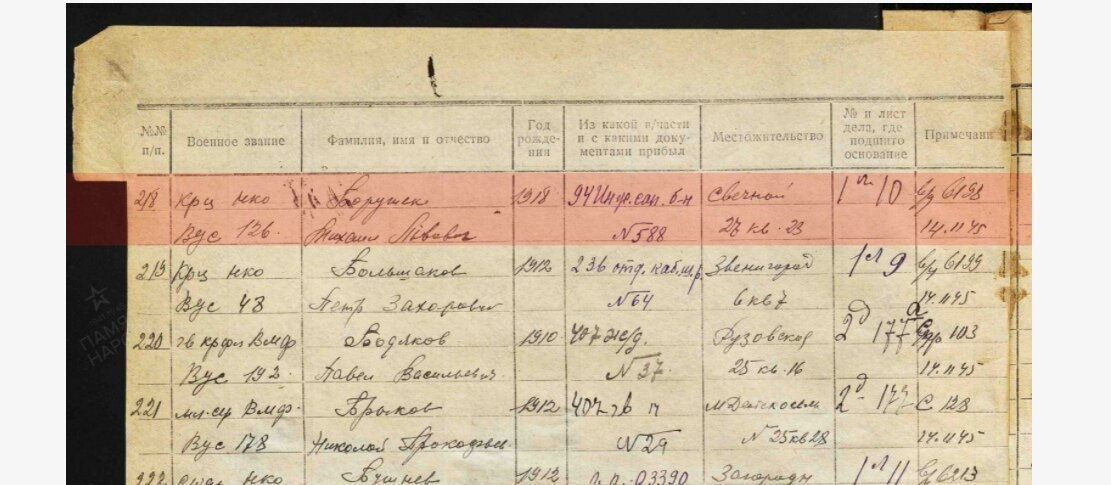 №№ п/п. Военное звание Фамилия, имя и отчество Год рождения Из какой в/части и с какими документами прибыл Местожительство № и лист дела, где подшито основание Примечани
218 Крц нко Борушек 1918 94 Инж. сап. б-н Свечной 1 л 10 6198
Вус 126. Михаил Львович №588 27 кв. 23 14.11.45
219 Крц нко Большаков 1912 236 отд. каб. Звенигород 1 л 9 6199
Вус 48 Петр Захарович №64 6 кв 7 14.11.45
220 гв крфл Вмф Бодяков 1910 407 Рузовская 2 д 177 103
Вус 192. Павел Васильевич. №37. 25 кв. 16 14.11.45
221 мл-сер Вмф. Брыков 1912 407 гв п М Детскосель 2 д 177 С 128
Вус 178 Николай Прокофьев №29 №25 кв 28 14.11.45
222 нко 1912 п.п. 03390 Загородн 1 л 11 6213
ПАМЯ
НАРО